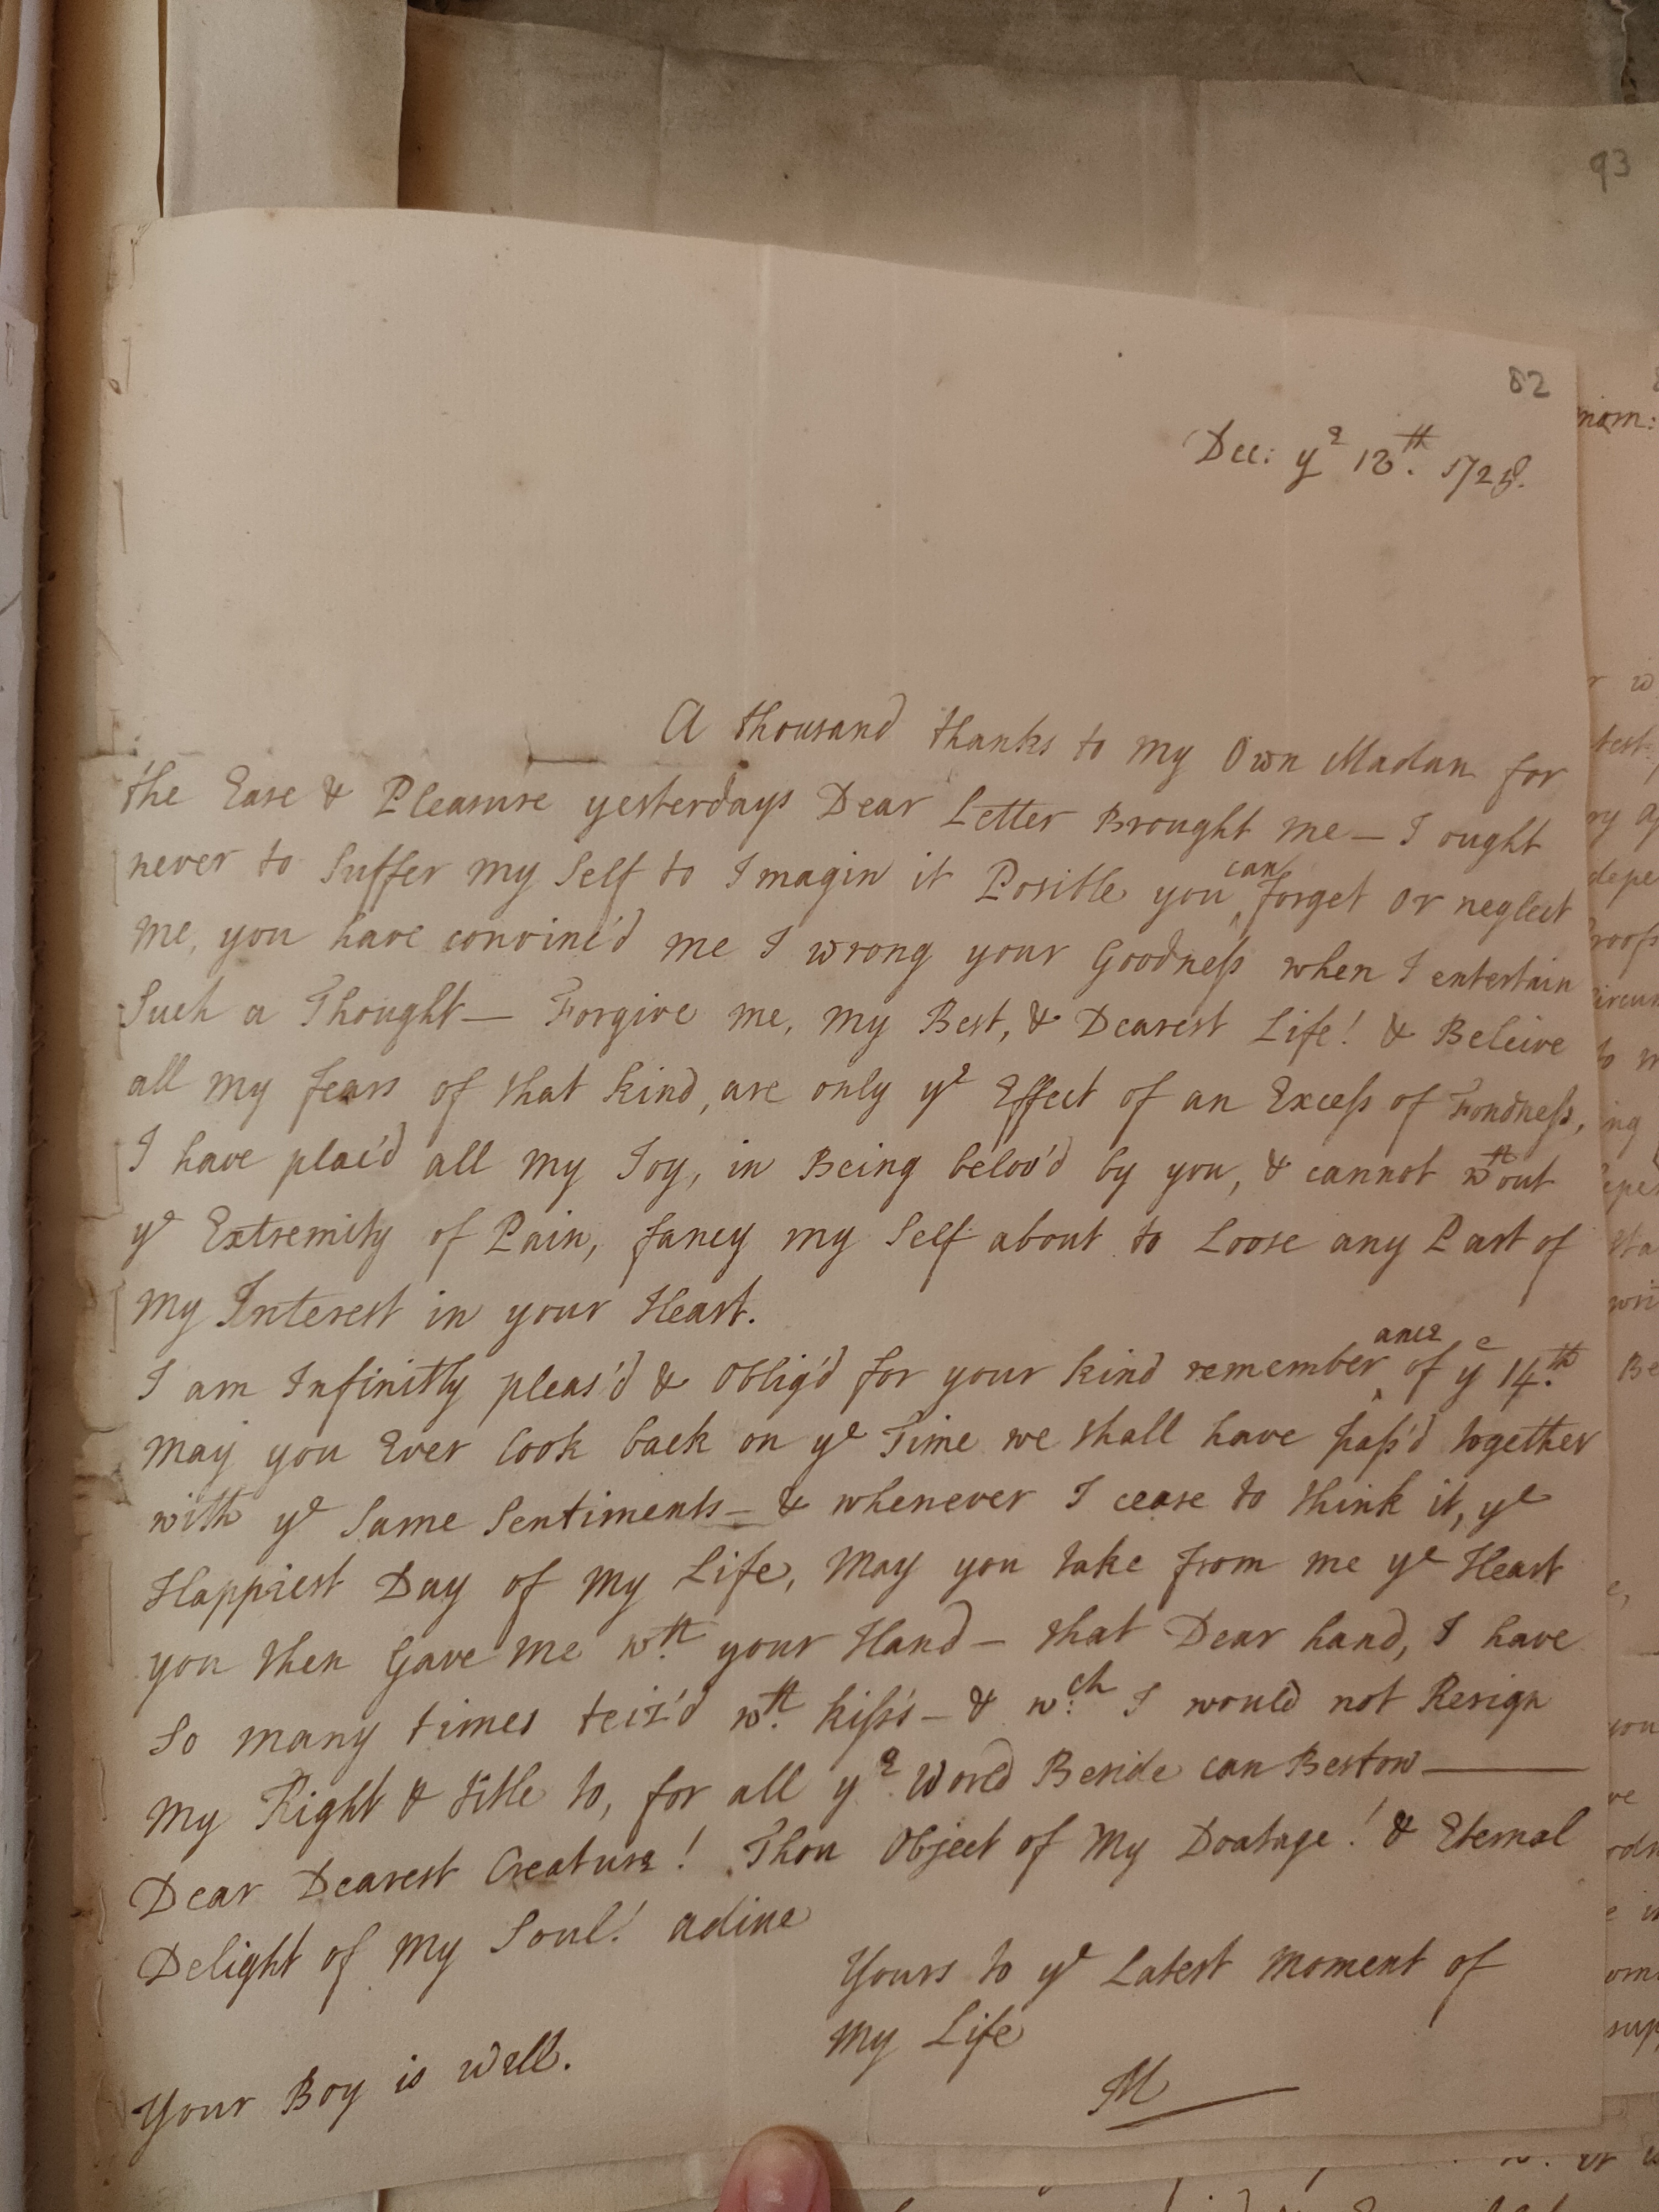 93
82
Dec: yᵉ 13.ᵗʰ 1728.
A thousand thanks to my Own Madan for
the Ease & Pleasure yesterdays Dear Letter Brought me — I ought
never to Suffer my Self to Imagin it Posible you ^can forget or neglect
me, you have convinc'd me I wrong your Goodness when I entertain
Such a Thought — Forgive me, my Best, & Dearest Life! & Beleive
all my fears of that kind, are only yᵉ Effect of an Excess of Fondness,
I have plac'd all my Joy, in Being belov'd by you, & cannot wᵗʰout
yᵉ Extremity of Pain, fancy my Self about to Loose any Part of
my Interest in your Heart.
I am Infinitly pleas'd & Oblig'd for your kind remember^ance of yᵉ 14.ᵗʰ
may you Ever look back on yᵉ Time we shall have pass'd together
with yᵉ Same Sentiments — & whenever I cease to think it, yᵉ
Happiest Day of my Life, may you take from me yᵉ Heart
you then Gave me wᵗʰ. your Hand — that Dear hand, I have
So many times teiz'd wᵗʰ. kiss's — & wᶜʰ. I would not Resign
my Right & title to, for all yᵉ World Beside can Bestow —
Dear Dearest Creature! Thou Object of my Doatage! & Eternal
Delight of my Soul! adiue
Yours to yᵉ Latest moment of
my Life
M
Your Boy is well.